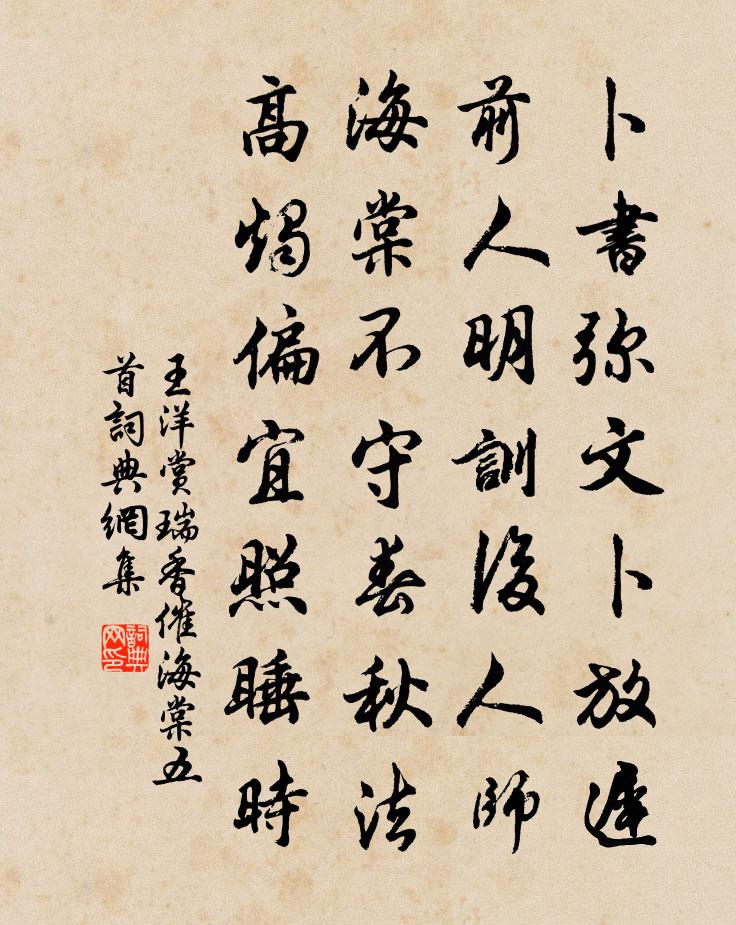 卜書弥文卜放遲
前人明訓後人師
海棠不守春秋法
高燭偏宜照睡時
王洋賞瑞香催海棠五
首詞典網集
詞典網印